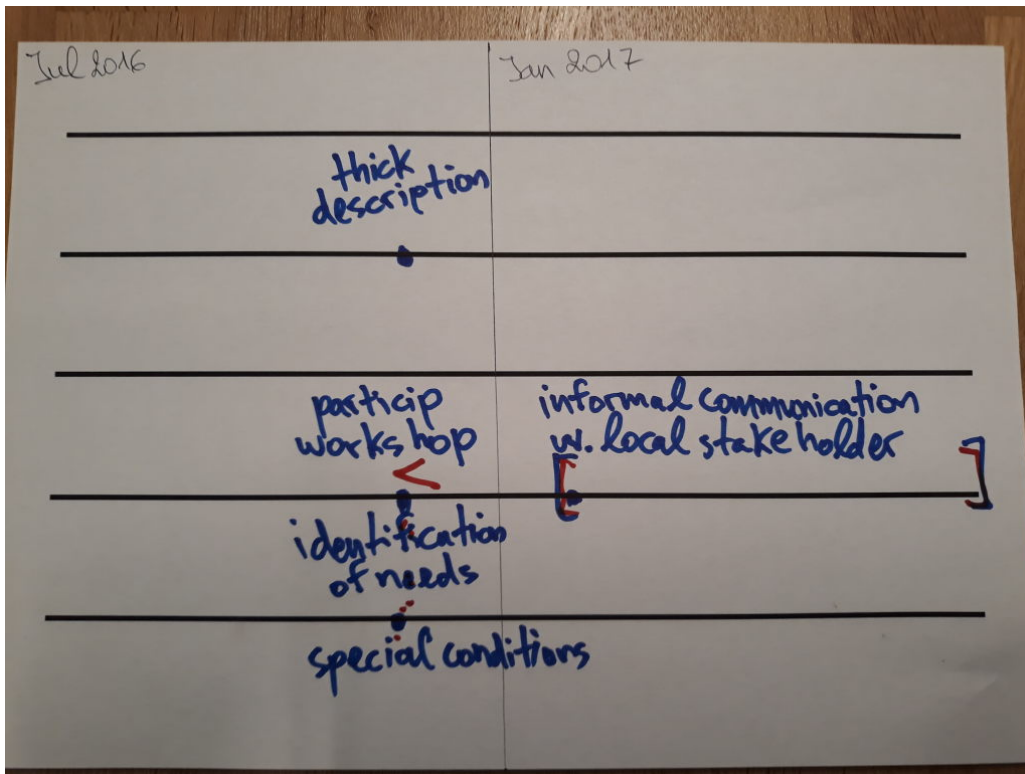 Jul 2016
Jan 2017
thick
description
particip
workshop
informal communication
w. local stakeholder
identification
of needs
special conditions